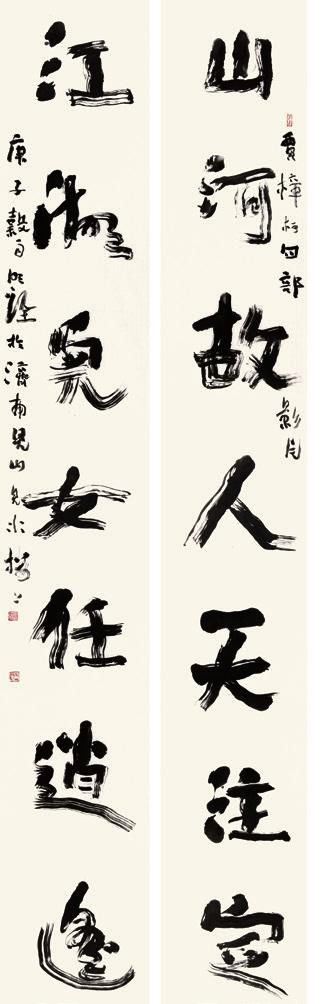 山河故人天注定
賈樟柯四部影片
江湖兒女任逍遙
庚子穀雨明詮於濟南見山見水樓上